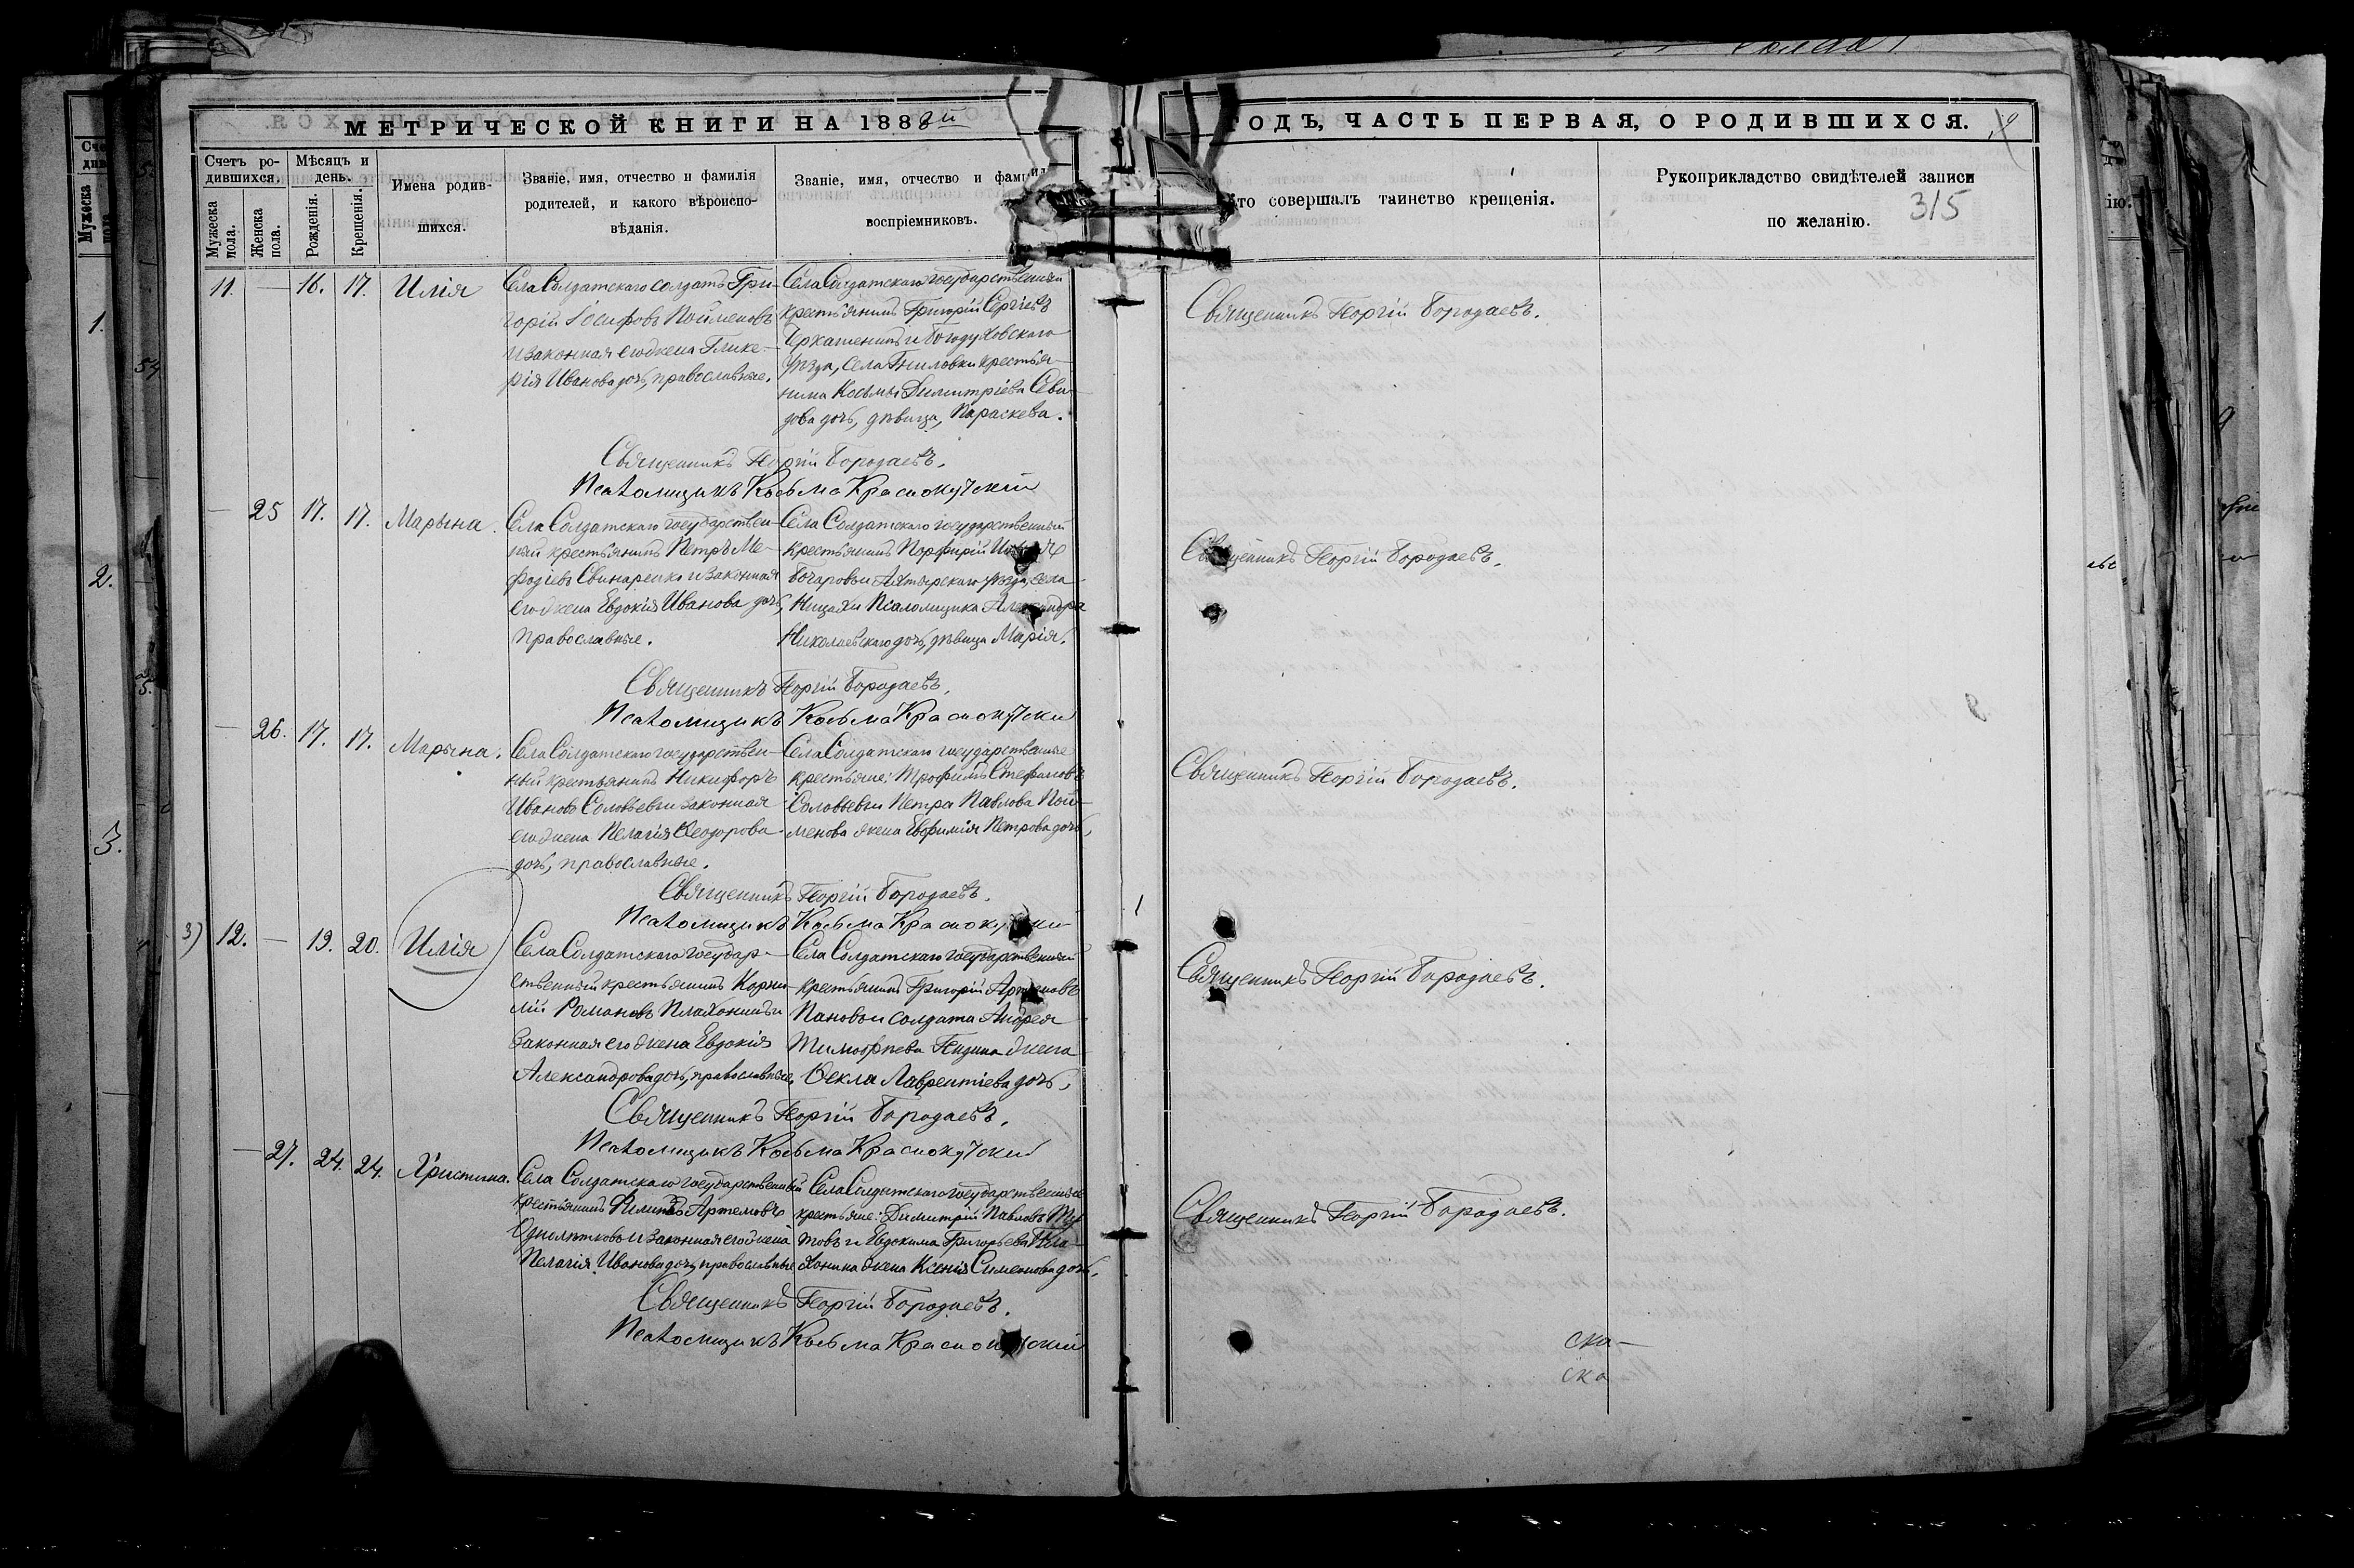 МЕТРИЧЕСКОЙ КНИГИ НА 1888й
ГОДЪ, ЧАСТЬ ПЕРВАЯ, О РОДИВШИХСЯ.
315
Счетъ ро-
дившихся.
Мужеска
пола.
Женска
пола.
Мѣсяцъ и
день.
Рожденія.
Крещенія.
Имена родив-
шихся.
Званіе, имя, отчество и фамилія
родителей, и какого вѣроиспо-
вѣданія.
Званіе, имя, отчество и фамилія
воспріемниковъ.
Кто совершалъ таинство крещенія.
Рукоприкладство свидѣтелей записи
по желанію.
11. — 16. 17. Илія
Села Солдатскаго солдатъ Гри-
горій Іосифовъ Пойменовъ
и законная его жена Глике-
рія Иванова дочь, православные.
Села Солдатскаго государственный
крестьянинъ Григорій Сергіевъ
и Богодуховскаго
уѣзда, села Гниловки крестья-
нина Косьмы Димитріева
дочь, дѣвица, Параскева.
Священникъ Георгій Бородаевъ.
Священникъ Георгій Бородаевъ.
Псаломщикъ Косьма Краснокутскій
— 25 17. 17. Марына.
Села Солдатскаго государствен-
ный крестьянинъ Петръ Ме-
фодіевъ Свинаренко и законная
его жена Евдокія Иванова дочь,
православные.
Села Солдатскаго государственный
крестьянинъ Порфирій
Бочаровъ и Ахтырскаго уѣзда, села
Ницахи Псаломщика Александра
Николаевскаго дочь, дѣвица Марія.
Священникъ Георгій Бородаевъ.
Священникъ Георгій Бородаевъ.
Псаломщикъ Косьма Краснокутски
— 26. 17. 17. Марына.
Села Солдатскаго государствен-
ный крестьянинъ Никифоръ
Ивановъ Соловьевъ и законная
его жена Пелагія Ѳеодорова
дочь, православные.
Села Солдатскаго государственные
крестьяне: Трофимъ Стефановъ
Соловьевъ и Петра Павлова Пой-
менова жена Евфимія Петрова дочь,
Священникъ Георгій Бородаевъ.
Священникъ Георгій Бородаевъ.
Псаломщикъ Косьма Краснокутски
3) 12. — 19. 20. Илія
Села Солдатскаго государ-
ственный крестьянинъ Корни-
лій Романовъ Плахонинъ и
законная его жена Евдокія
Александрова дочь, православные.
Села Солдатскаго государственный
крестьянинъ Григорій Артемовъ
Пановъ и солдата Андрея
Тимофѣева жена
Ѳекла Лаврентіева дочь,
Священникъ Георгій Бородаевъ.
Священникъ Георгій Бородаевъ.
Псаломщикъ Косьма Краснокутский
— 27. 24. 24. Христина.
Села Солдатскаго государственный
крестьянинъ Филипъ Артемовъ
Однолѣтковъ и законная его жена
Пелагія Иванова дочь, православные
Села Солдатскаго государственные
крестьяне: Димитрій Павловъ
товъ и Евдокима Григорьева Пла-
хонина жена Ксенія Симеонова дочь,
Священникъ Георгій Бородаевъ.
Священникъ Георгій Бородаевъ.
Псаломщикъ Косьма Краснокутский
ска-
ска